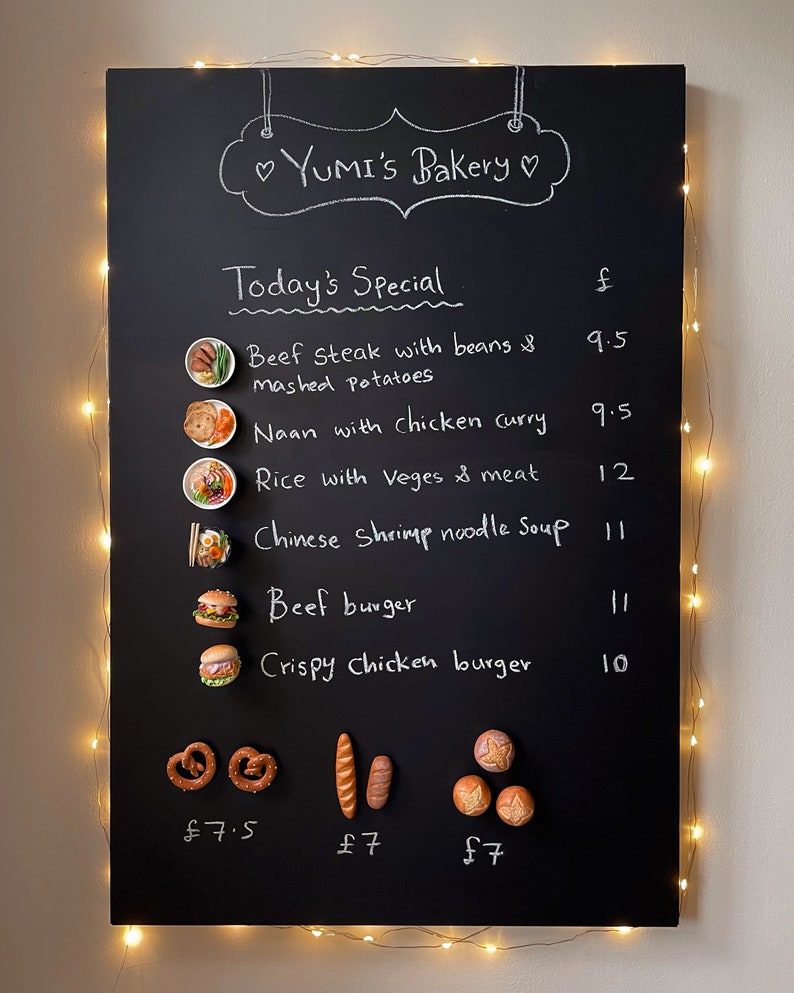 Yumi's Bakery
Today's Special £
Beef steak with beans & 9.5
mashed potatoes
Naan with chicken curry 9.5
Rice with veges & meat 12
Chinese shrimp noodle soup 11
Beef burger 11
Crispy chicken burger 10
£7.5 £7 £7